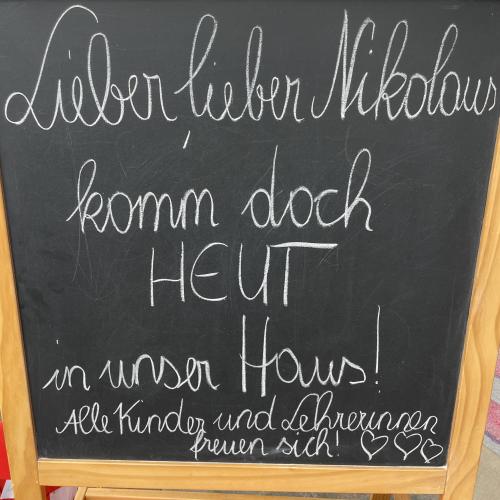 Lieber, lieber Nikolaus
komm doch
HEUT
in unser Haus!
Alle Kinder und Lehrerinnen
freuen sich! ♡♡♡